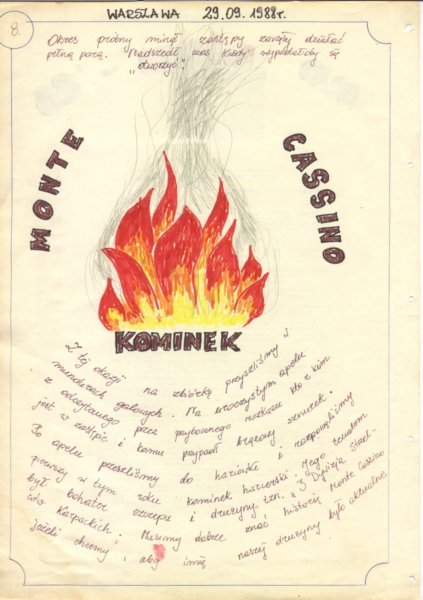 8.
WARSZAWA 29.09.1988r.
Okres próbny minął zastępy zaczęły działać
pełną parą. Nadszedł czas kiedy wypadałoby się
"otworzyć".
MONTE
CASSINO
KOMINEK
Z tej okazji na zbiórkę przyszliśmy w
mundurach galowych. Na uroczystym apelu
z odczytanego prze przybocznego rozkazu kto z kim
jest w zastępie i komu przypadł brązowy sznurek.
Po apelu przeszliśmy do harcówki i rozpoczęliśmy
pierwszy w tym roku kominek harcerski. Jego tematem
był bohater szczepu i drużyny tzn. "3 Dywizja Strzel-
ców Karpackich. Musimy dobrze znać historię Monte Cassino
jeżeli chcemy, aby imię naszej drużyny było aktualne.